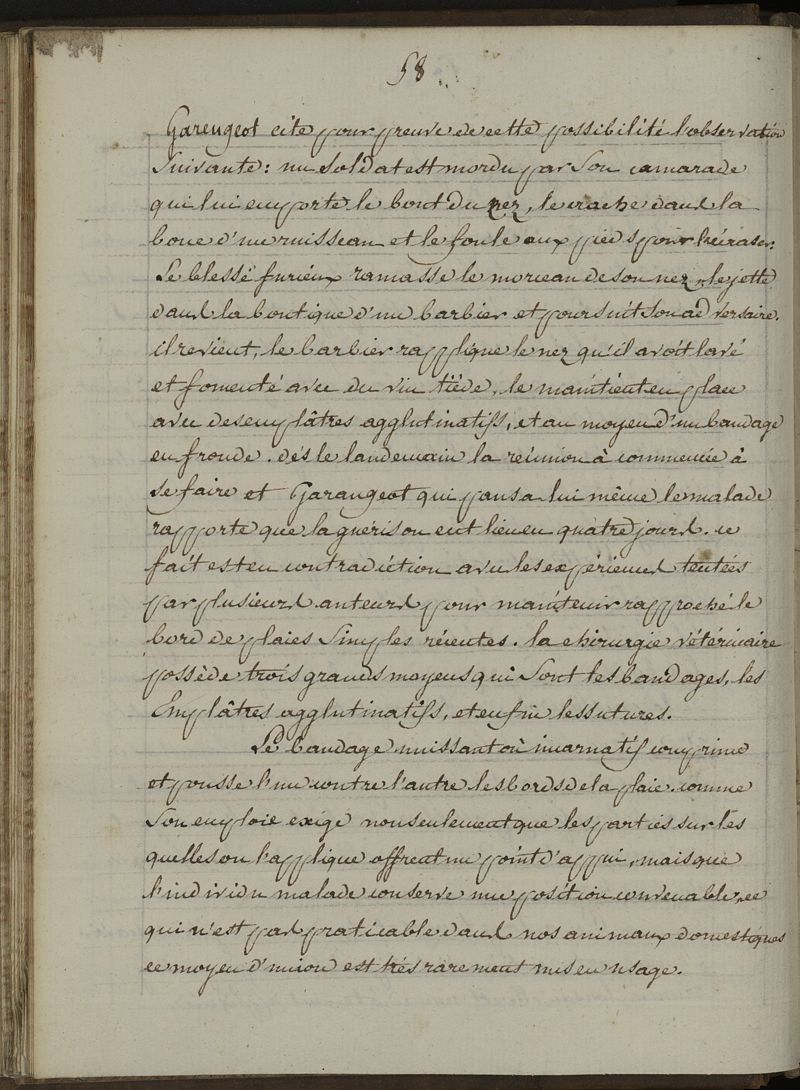 58..
Garengeot cite pour preuve de cette possibilité l'observation
Suivante : un Soldat est mordu par Son camarade
qui lui emporte le bout du nez, le crache dans la
boue d'un ruisseau et le foule aux pieds pour l'écraser.
Le blessé furieux ramasse le morceau de son nez, le jette
dans la boutique d'un barbier et poursuit Son adversaire.
il revient, le barbier rapplique le nez qu'il avoit lavé
et fomenté avec du vin tiède, le maintient en place
avec des emplâtres agglutinatifs, et au moyen d'un bandage
en fronde. dès le landemain la réunion à commencée à
se faire et Garangeot qui pansa lui même le malade
rapporte que la guérison eut lieu en quatre jours. ce
fait est en contradiction avec les expériences tentées
par plusieurs auteurs pour maintenir rapproché le
bord de plaies Simples récentes. la chirurgie vétérinaire
possède trois grands moyens qui Sont les bandages, les
Emplâtres agglutinatifs, et enfin les sutures.
Le bandage unissant où incarnatif comprime
et pousse l'une contre l'autre les bords de la plaie. comme
Son emploie exige non seulement que les parties sur les
quelles on l'applique offrent un point d'appui, mais que
l'individu malade conserve une position convenable, ce
qui n'est pas praticable dans nos animaux domestiques
ce moyen d'union est très rarement mis en usage.